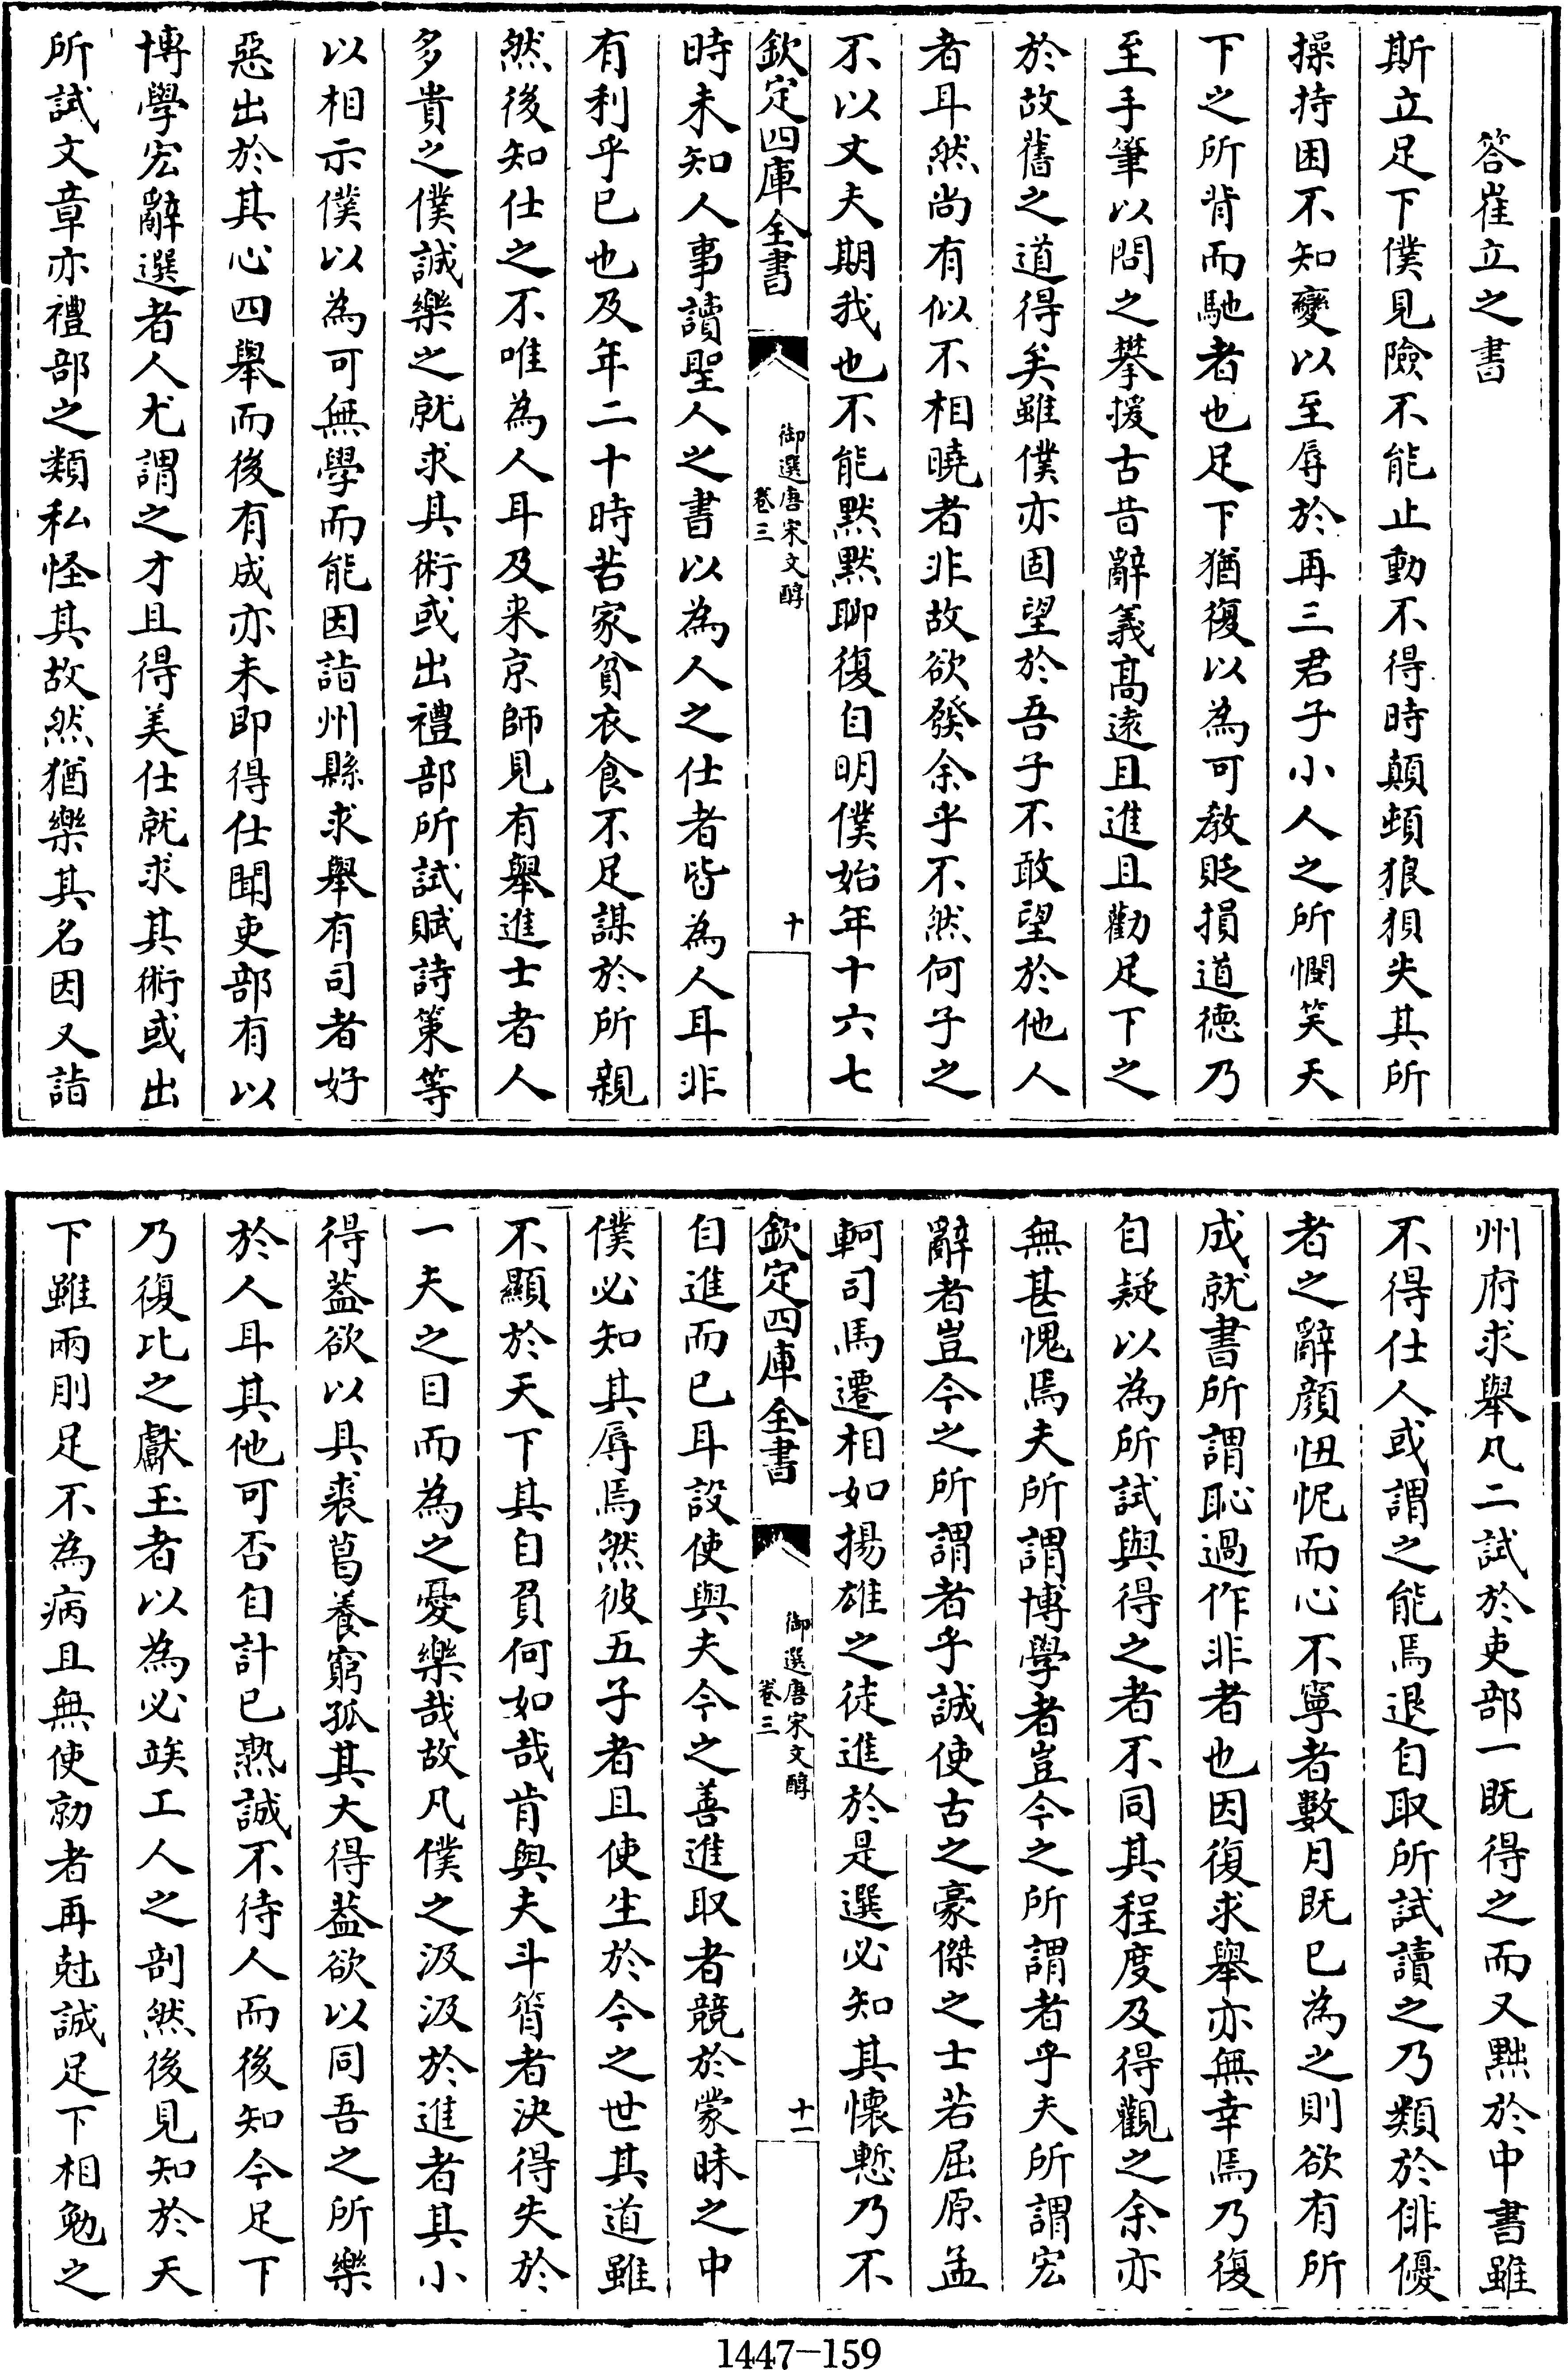 答崔立之書
斯立足下僕見險不能止動不得時顛頓狼狽失其所
操持困不知變以至辱於再三君子小人之所憫笑天
下之所背而馳者也足下猶復以為可教貶損道德乃
至手筆以問之攀援古昔辭義高遠且進且勸足下之
於故舊之道得矣雖僕亦固望於吾子不敢望於他人
者耳然尚有似不相曉者非故欲發余乎不然何子之
不以丈夫期我也不能默默聊復自明僕始年十六七
欽定四庫全書
御選唐宋文醇
卷三
十
時未知人事讀聖人之書以為人之仕者皆為人耳非
有利乎已也及年二十時苦家貧衣食不足謀於所親
然後知仕之不唯為人耳及來京師見有舉進士者人
多貴之僕誠樂之就求其術或出禮部所試賦詩策等
以相示僕以為可無學而能因詣州縣求舉有司者好
惡出於其心四舉而後有成亦未即得仕聞吏部有以
博學宏辭選者人尤謂之才且得美仕就求其術或出
所試文章亦禮部之類私怪其故然猶樂其名因又詣
州府求舉凡二試於吏部一既得之而又黜於中書雖
不得仕人或謂之能焉退自取所試讀之乃類於俳優
者之辭顏忸怩而心不寧者數月既已為之則欲有所
成就書所謂恥過作非者也因復求舉亦無幸焉乃復
自疑以為所試與得之者不同其程度及得觀之余亦
無甚愧焉夫所謂博學者豈今之所謂者乎夫所謂宏
辭者豈今之所謂者乎誠使古之豪傑之士若屈原孟
軻司馬遷相如揚雄之徒進於是選必知其懷慙乃不
欽定四庫全書
御選唐宋文醇
卷三
十一
自進而已耳設使與夫今之善進取者競於蒙昧之中
僕必知其辱焉然彼五子者且使生於今之世其道雖
不顯於天下其自負何如哉肯與夫斗筲者決得失於
一夫之目而為之憂樂哉故凡僕之汲汲於進者其小
得葢欲以具裘葛養窮孤其大得葢欲以同吾之所樂
於人耳其他可否自計已熟誠不待人而後知今足下
乃復比之獻玉者以為必竢工人之剖然後見知於天
下雖兩刖足不為病且無使勍者再尅誠足下相勉之
1447-159